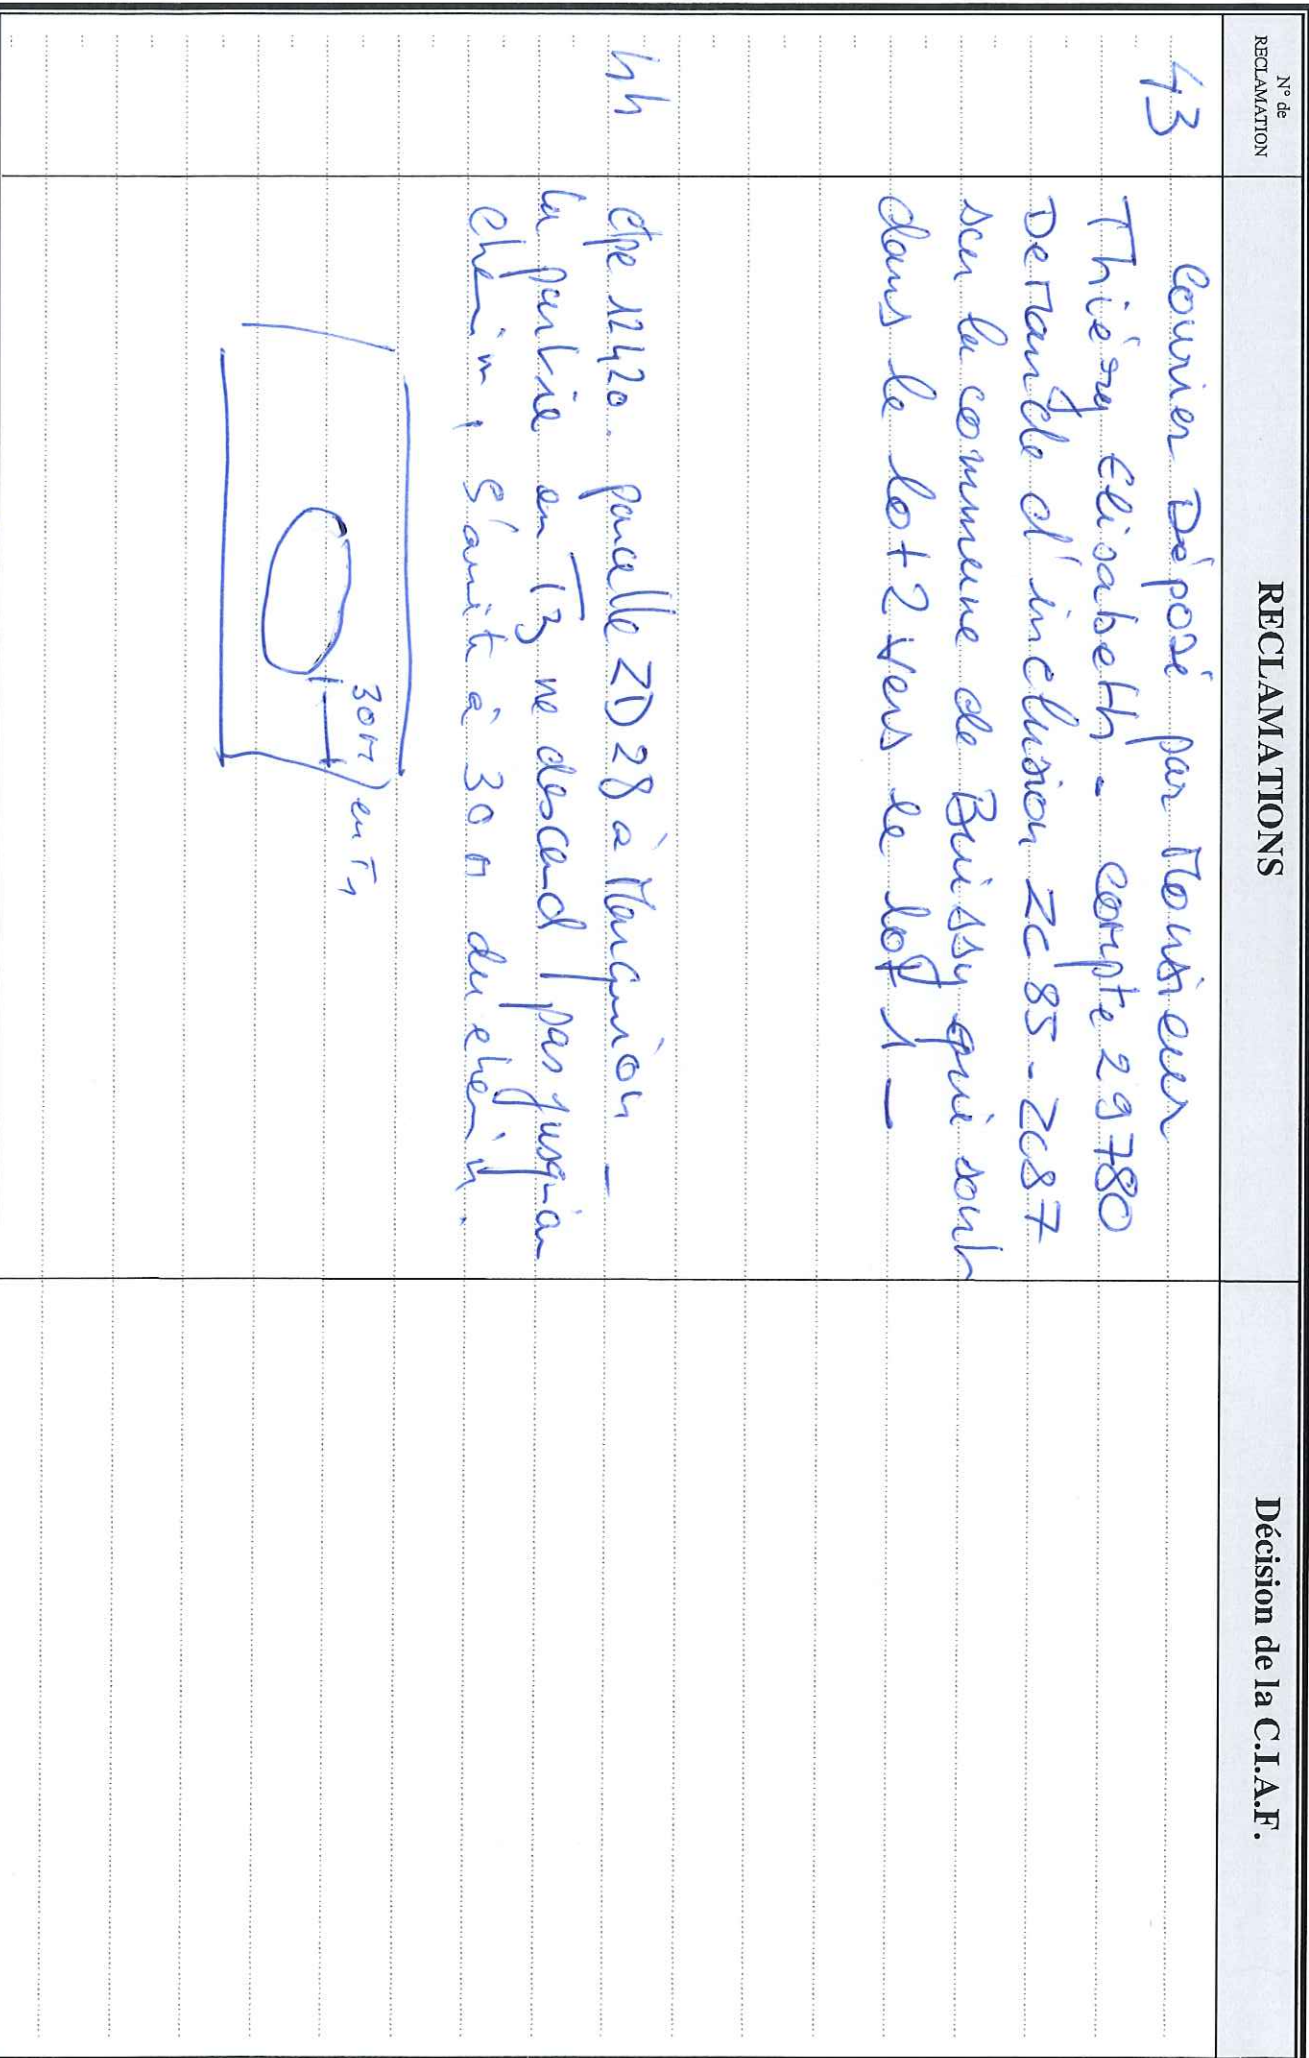 N° de
RECLAMATION
RECLAMATIONS
Décision de la C.I.A.F.
43
Courier Déposé par Monsieur
Thiéry Elisabeth - compte 29780
Demande d'inclusion ZC 85 - ZC87
sur la commune de Buissy qui sont
dans le lot 2 vers le lot 1 -
44
cpe 12420. parcelle ZD 28 à Marquion -
la partie en T3 ne descend pas jusqu'au
chemin, s'arrête à 30 m du chemin.
30m en T1